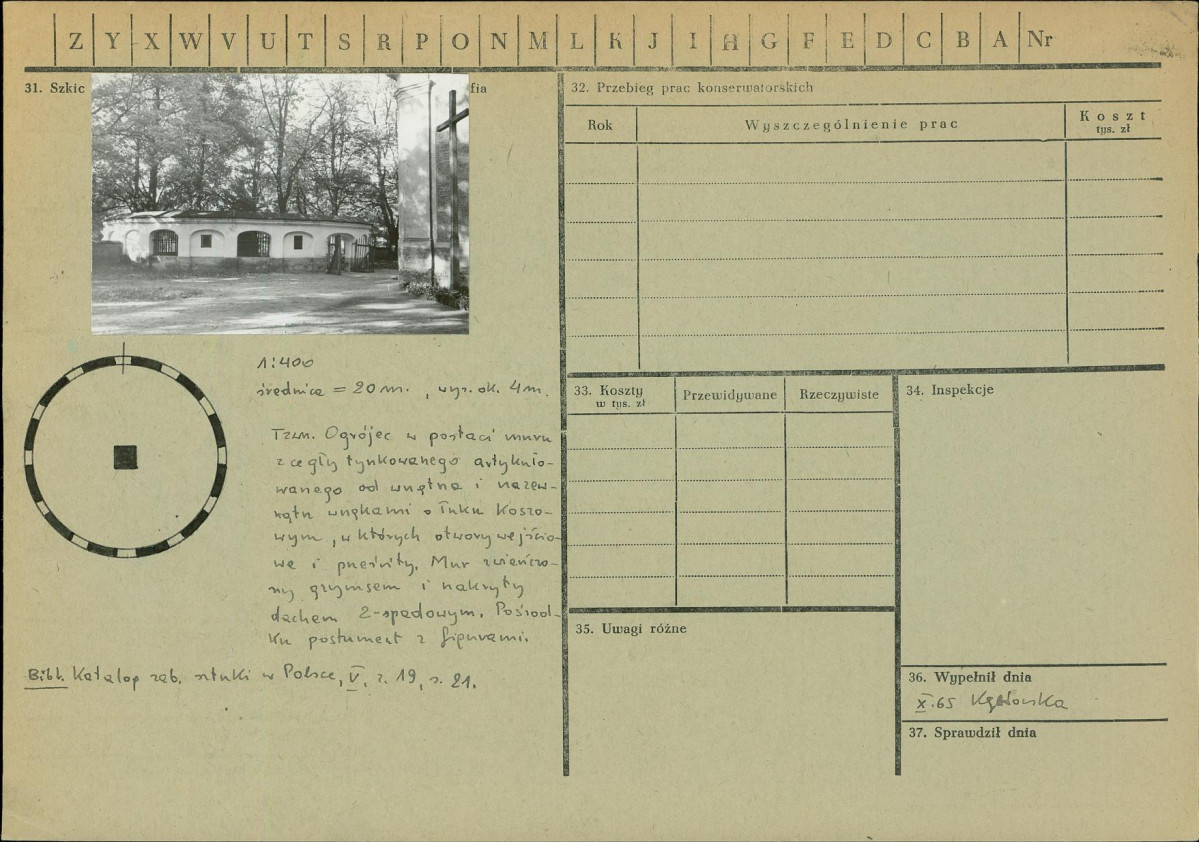 Z Y X W V U T S R P O N M L K J I H G F E D C B A Nr
31. Szkic fia
1:400
średnica = 20 m. , wys. ok. 4 m.
Tzw. Ogrójec w postaci muru
z cegły tynkowanego artykuło-
wanego od wnętrza i nazew-
nątrz wnękami o łuku koszo-
wym, w których otwory wejścio-
we i prześwity. Mur zwieńczo-
ny gzymsem i nakryty
dachem 2-spadowym. Pośrod-
ku postument z figurami.
Bibl. Katalog zab. sztuki w Polsce, V, z. 19, s. 21.
32. Przebieg prac konserwatorskich
Rok Wyszczególnienie prac Koszt
tys. zł
33. Koszty
w tys. zł
Przewidywane Rzeczywiste
34. Inspekcje
35. Uwagi różne
36. Wypełnił dnia
X.65
37. Sprawdził dnia